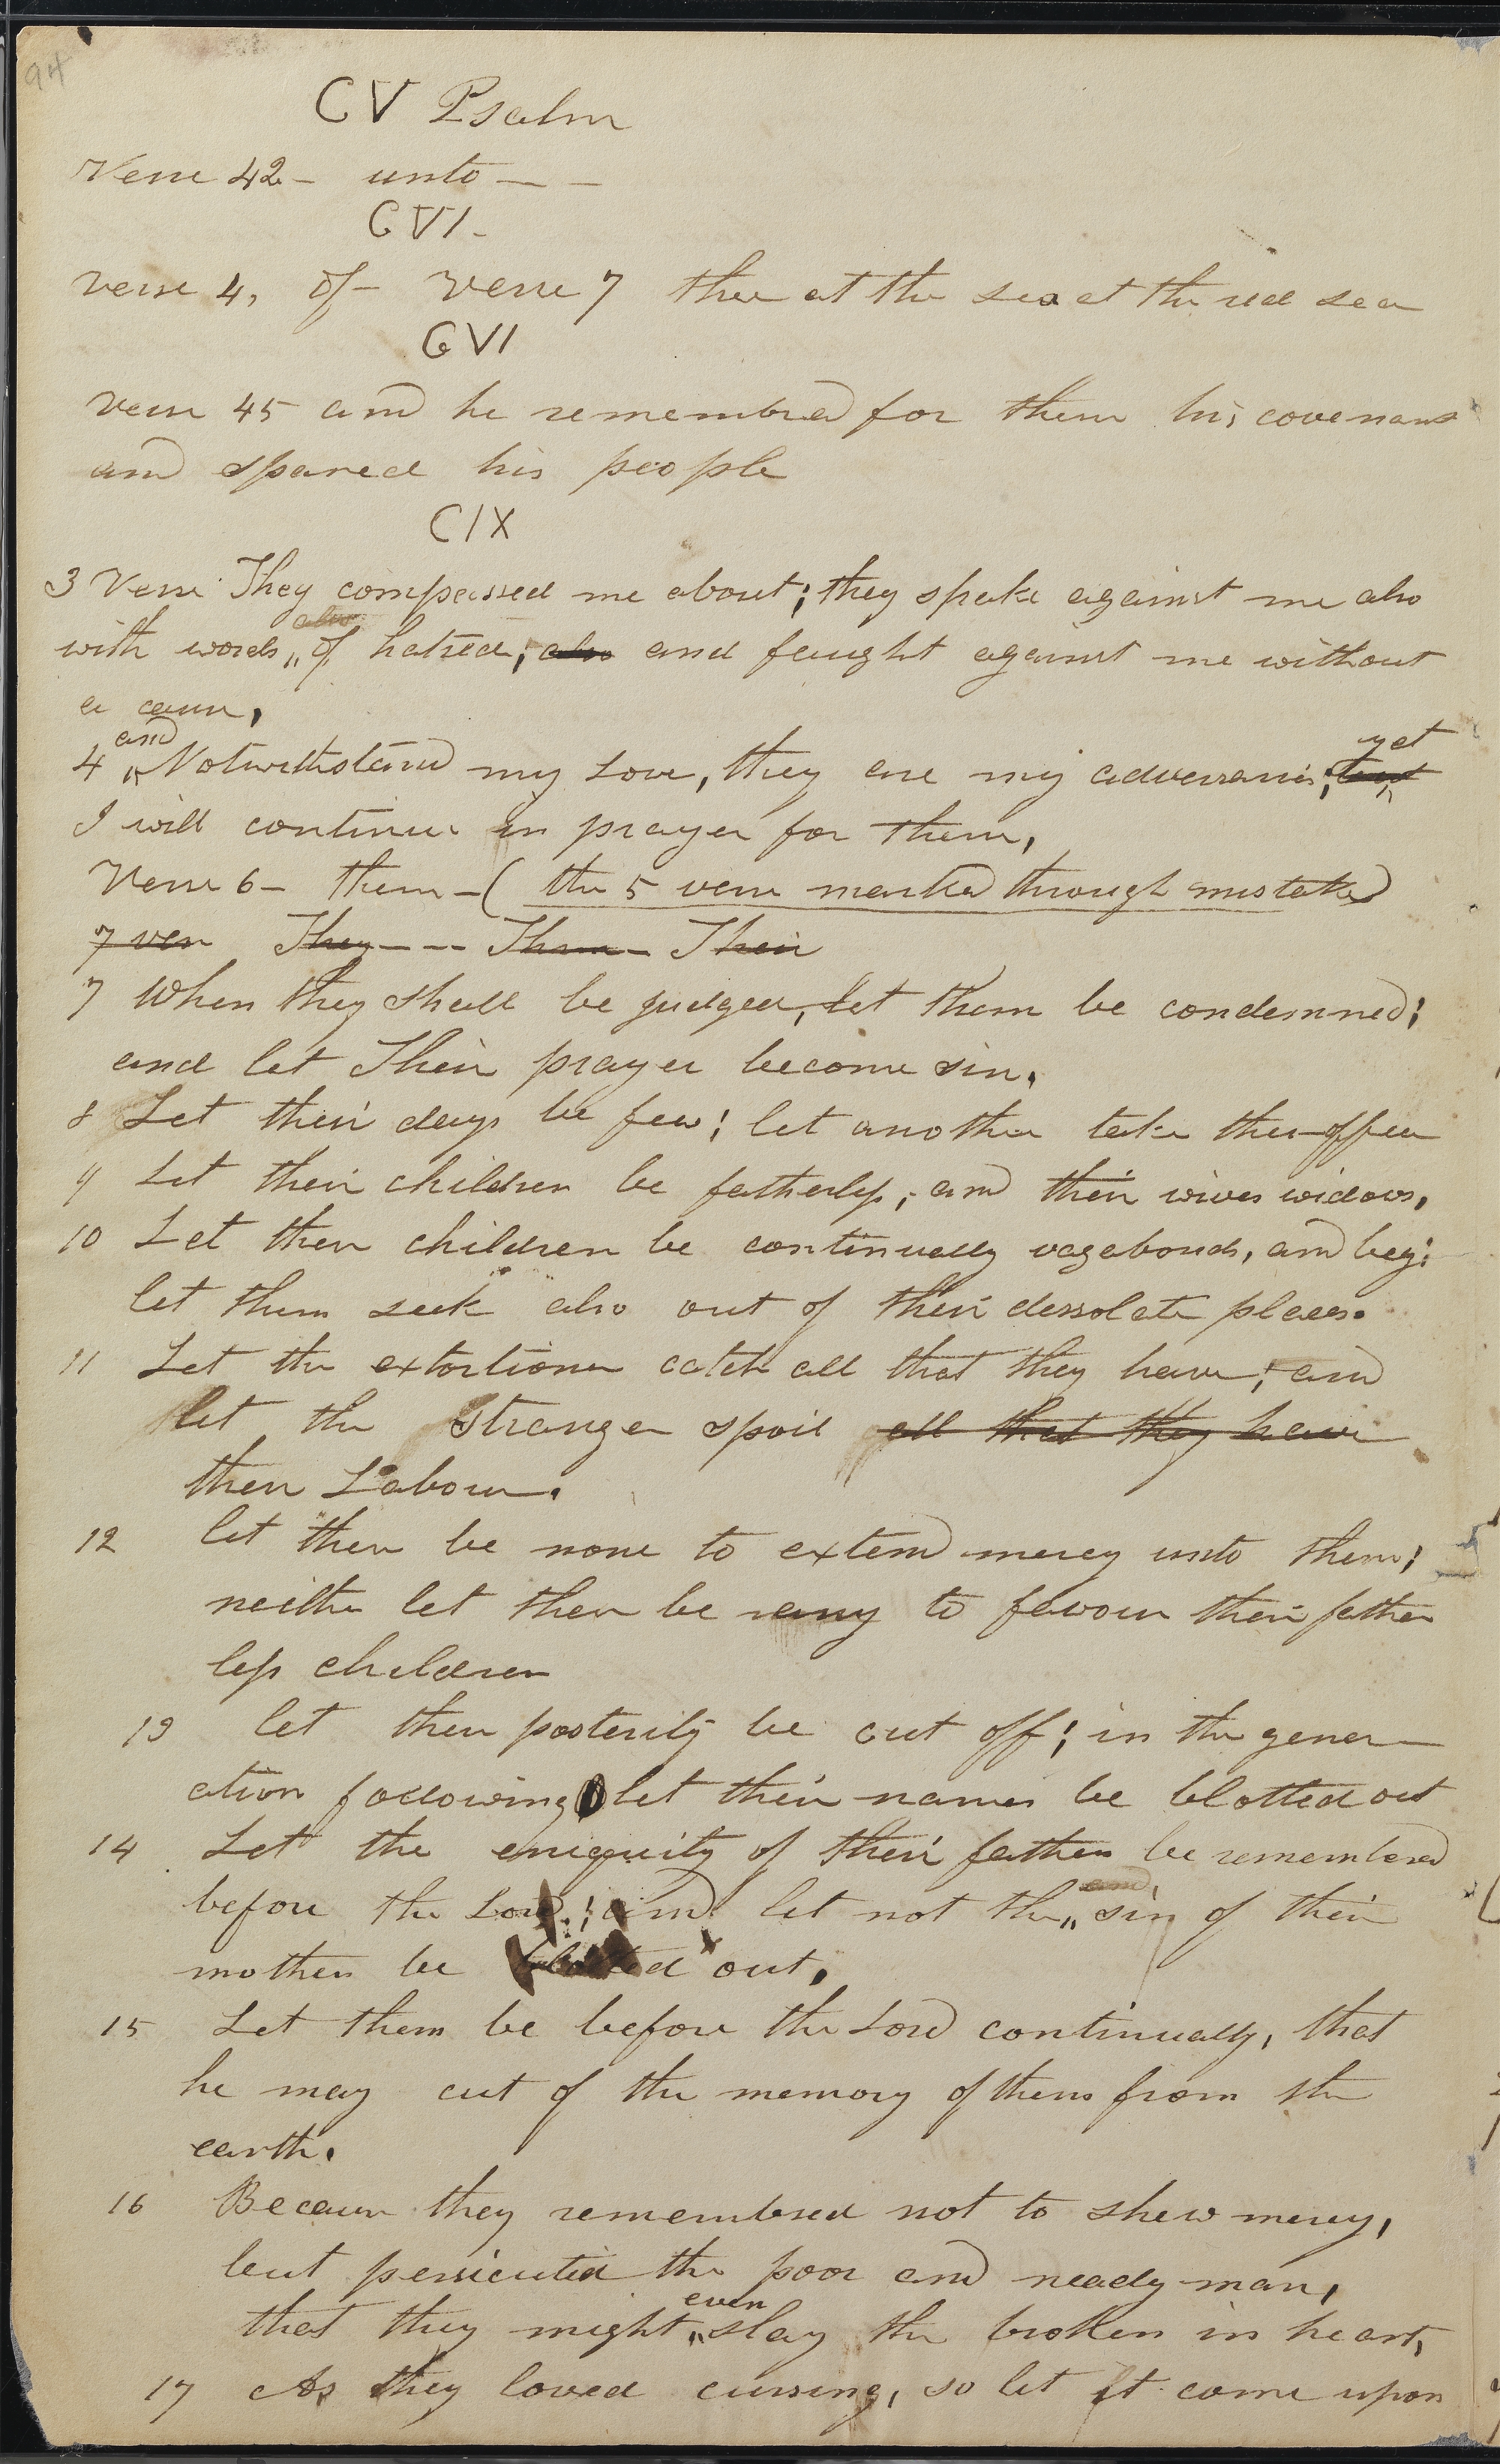 94
CV Psalm
Verse 42 - unto - -
CVI -
verse 4, of - verse 7 thee at the sea at the red sea
CVI
verse 45 and he remembred for them his covenant
and spared his people
CIX
3 Verse They compassed me about; they spake against me also
also
with words,, of hatred; also and faught against me without
a cause,
and
4 ,, Notwithstand my Love, they are my adversaries; but
yet
I will continue in prayer for them,
Verse 6 - them - (the 5 verse marked through mistake)
7 ver They - - - Them - Their
7 When they shall be judged, let them be condemned;
and let Their prayer become sin,
8 Let their days be few; let another take their office
9 Let their children be fatherless; and their wives widows,
10 Let their children be continually vagabonds, and beg;
let them seek also out of their dessolate places.
11 Let the extortioner catch all that they have; and
let the stranger spoil all that they have
their Labour.
12 let there be none to extend mercy unto them;
neither let there be any to favour their father
less children
13 let their posterity be cut off; in the gener -
ation following let their names be blotted out
14 Let the eniquity of their fathers be remembered
before the Lord; and let not the,, sin of their
and
mothers be blotted out,
15 Let them be before the Lord continually, that
he may cut of the memory of them from the
earth.
16 Because they remembred not to shew mercy,
but persicuted the poor and neady man,
even
that they might,, slay the broken in heart,
17 As they loved cursing, so let it come upon